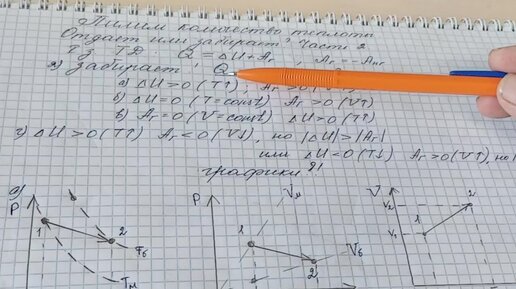 Пилим количество теплоты
Отдает или забирает? Часть 2
ТЗ ТД Q = ΔU + Aг , Aг = -A
а) забирает , Q
а) ΔU > 0 (T↑) , Aг > 0 (V↑)
б) ΔU = 0 (T = const) Aг > 0 (V↑)
в) Aг = 0 (V = const) ΔU > 0 (T↑)
г) ΔU > 0 (T↑) Aг < 0 (V↓) , но |ΔU| > |Aг|
или ΔU < 0 (T↓) Aг > 0 (V↑) , но
графики
а)
P
1
2
Tб
Tм
P
Vм
1
2
Vб
V
V₂
V₁
1
2